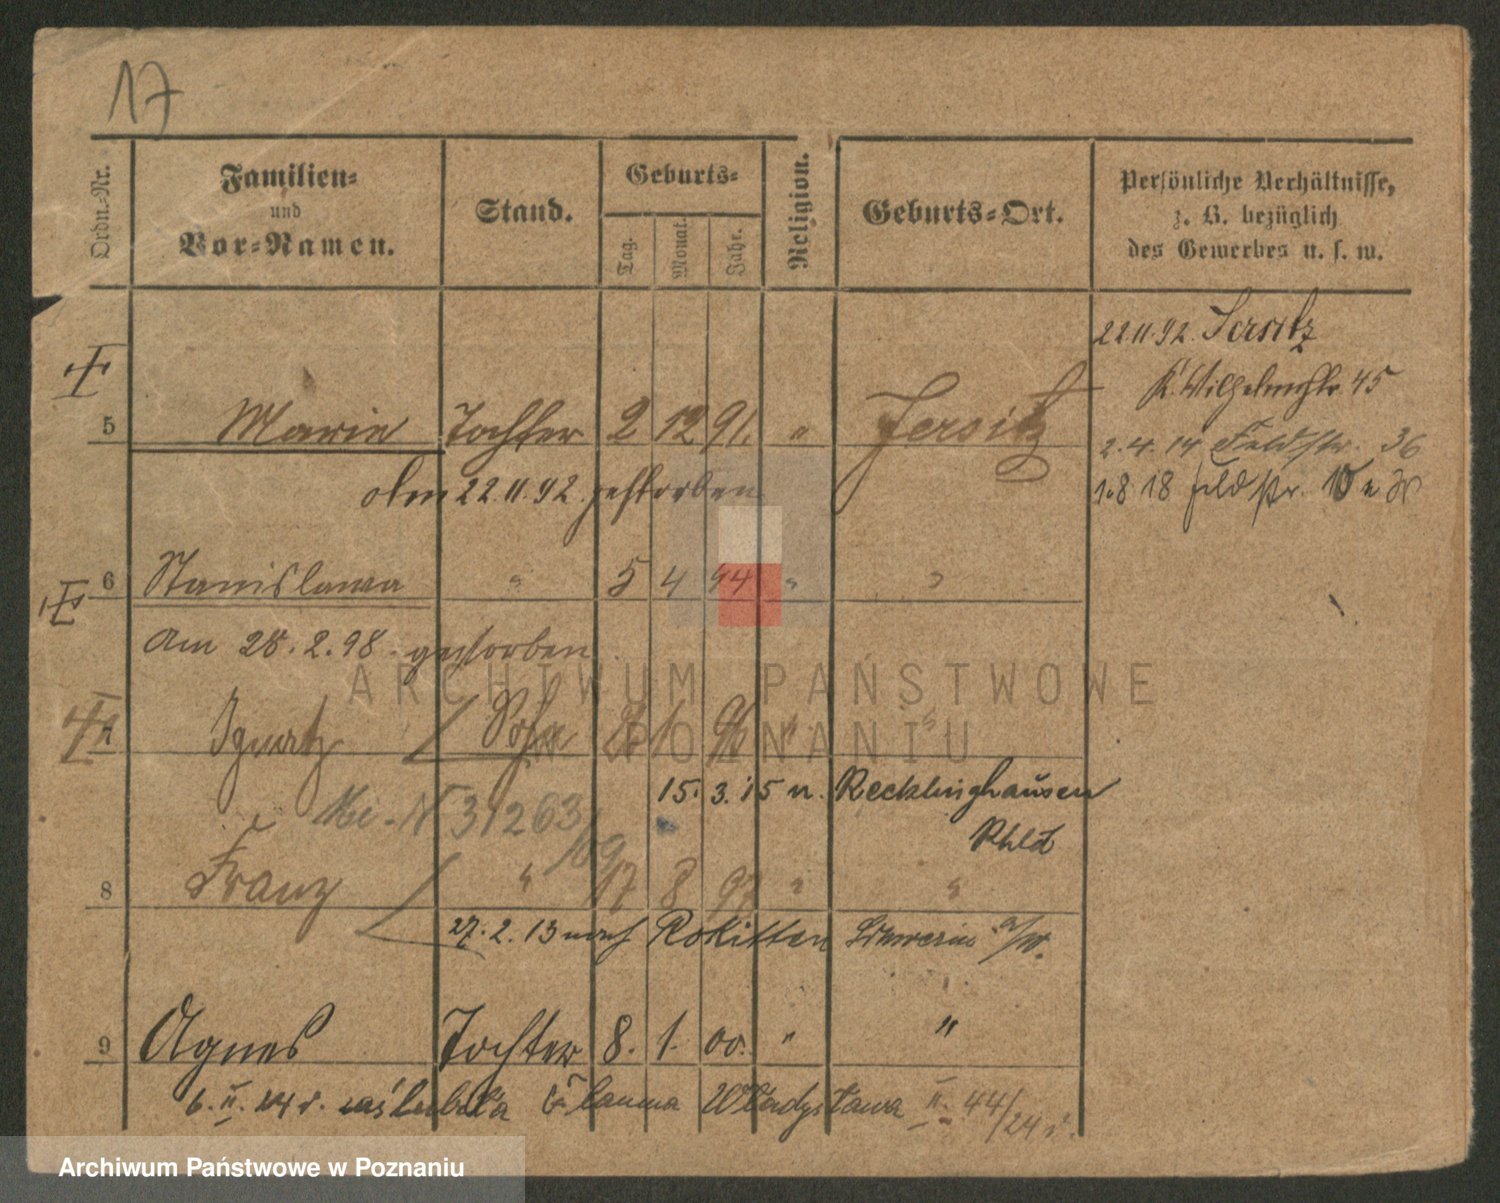 17
Ordn.-Nr.
Familien-
und
Vor-Namen.
Stand.
Geburts-
Tag.
Monat.
Jahr.
Religion.
Geburts-Ort.
Persönliche Verhältnisse,
z. B. bezüglich
des Gewerbes u. s. w.
22.11.92. Jersitz
K. Wilhelmstr. 45
5 Marie Tochter 2 12 91. " Jersitz
2.4.14 Feldstr. 36
am 22.11.92. gestorben
1.8 18 Feldstr.
6 Stanislawa " 5 4 94 " "
Am 28.2.98. gestorben.
7 Ignatz Sohn 1 96 " "
15. 3. 15 n. Recklinghausen
Rhld
N 31263/09
8 Franz " 17 8 97 " "
27. 2. 13 nach Rokitten Schwerin a/W.
9 Agnes Tochter 8. 1. 00. " "
6. II. 24 r. zaślubiła Władysława II. 44/24 r.
ARCHIWUM PAŃSTWOWE
W POZNANIU
Archiwum Państwowe w Poznaniu